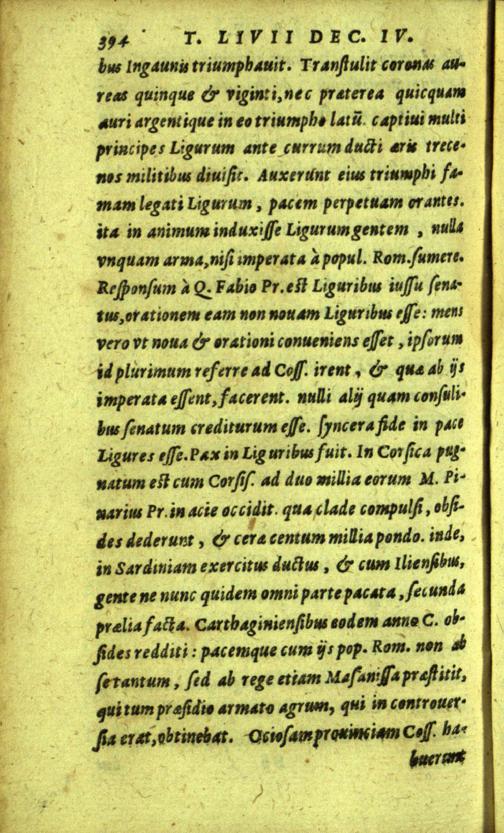 394 T. LIVII DEC. IV.
bus Ingaunis triumphauit. Transtulit coronas au-
reas quinque & viginti, nec præterea quicquam
auri argentique in eo triumpho latũ. captiui multi
principes Ligurum ante currum ducti æris trece-
nos militibus diuisit. Auxerunt eius triumphi fa-
mam legati Ligurum, pacem perpetuam orantes.
ita in animum induxisse Ligurum gentem, nulla
vnquam arma, nisi imperata à popul. Rom. sumere.
Responsum à Q. Fabio Pr. est Liguribus iussu sena-
tus, orationem eam non nouam Liguribus esse: mens
vero vt noua & orationi conueniens esset, ipsorum
id plurimum referre ad Coss. irent, & quæ ab ijs
imperata essent, facerent. nulli alij quam consuli-
bus senatum crediturum esse. syncera fide in pace
Ligures esse. Pax in Liguribus fuit. In Corsica pug-
natum est cum Corsis. ad duo millia eorum M. Pi-
narius Pr. in acie occidit. qua clade compulsi, obsi-
des dederunt, & ceræ centum millia pondo. inde,
in Sardiniam exercitus ductus, & cum Iliensibus,
gente ne nunc quidem omni parte pacata, secunda
prælia facta. Carthaginiensibus eodem anno C. ob-
sides redditi: pacemque cum ijs pop. Rom. non ab
se tantum, sed ab rege etiam Masanissa præstitit,
qui tum præsidio armato agrum, qui in controuer-
sia erat, obtinebat. Ociosam prouinciam Coss. ha-
buerunt